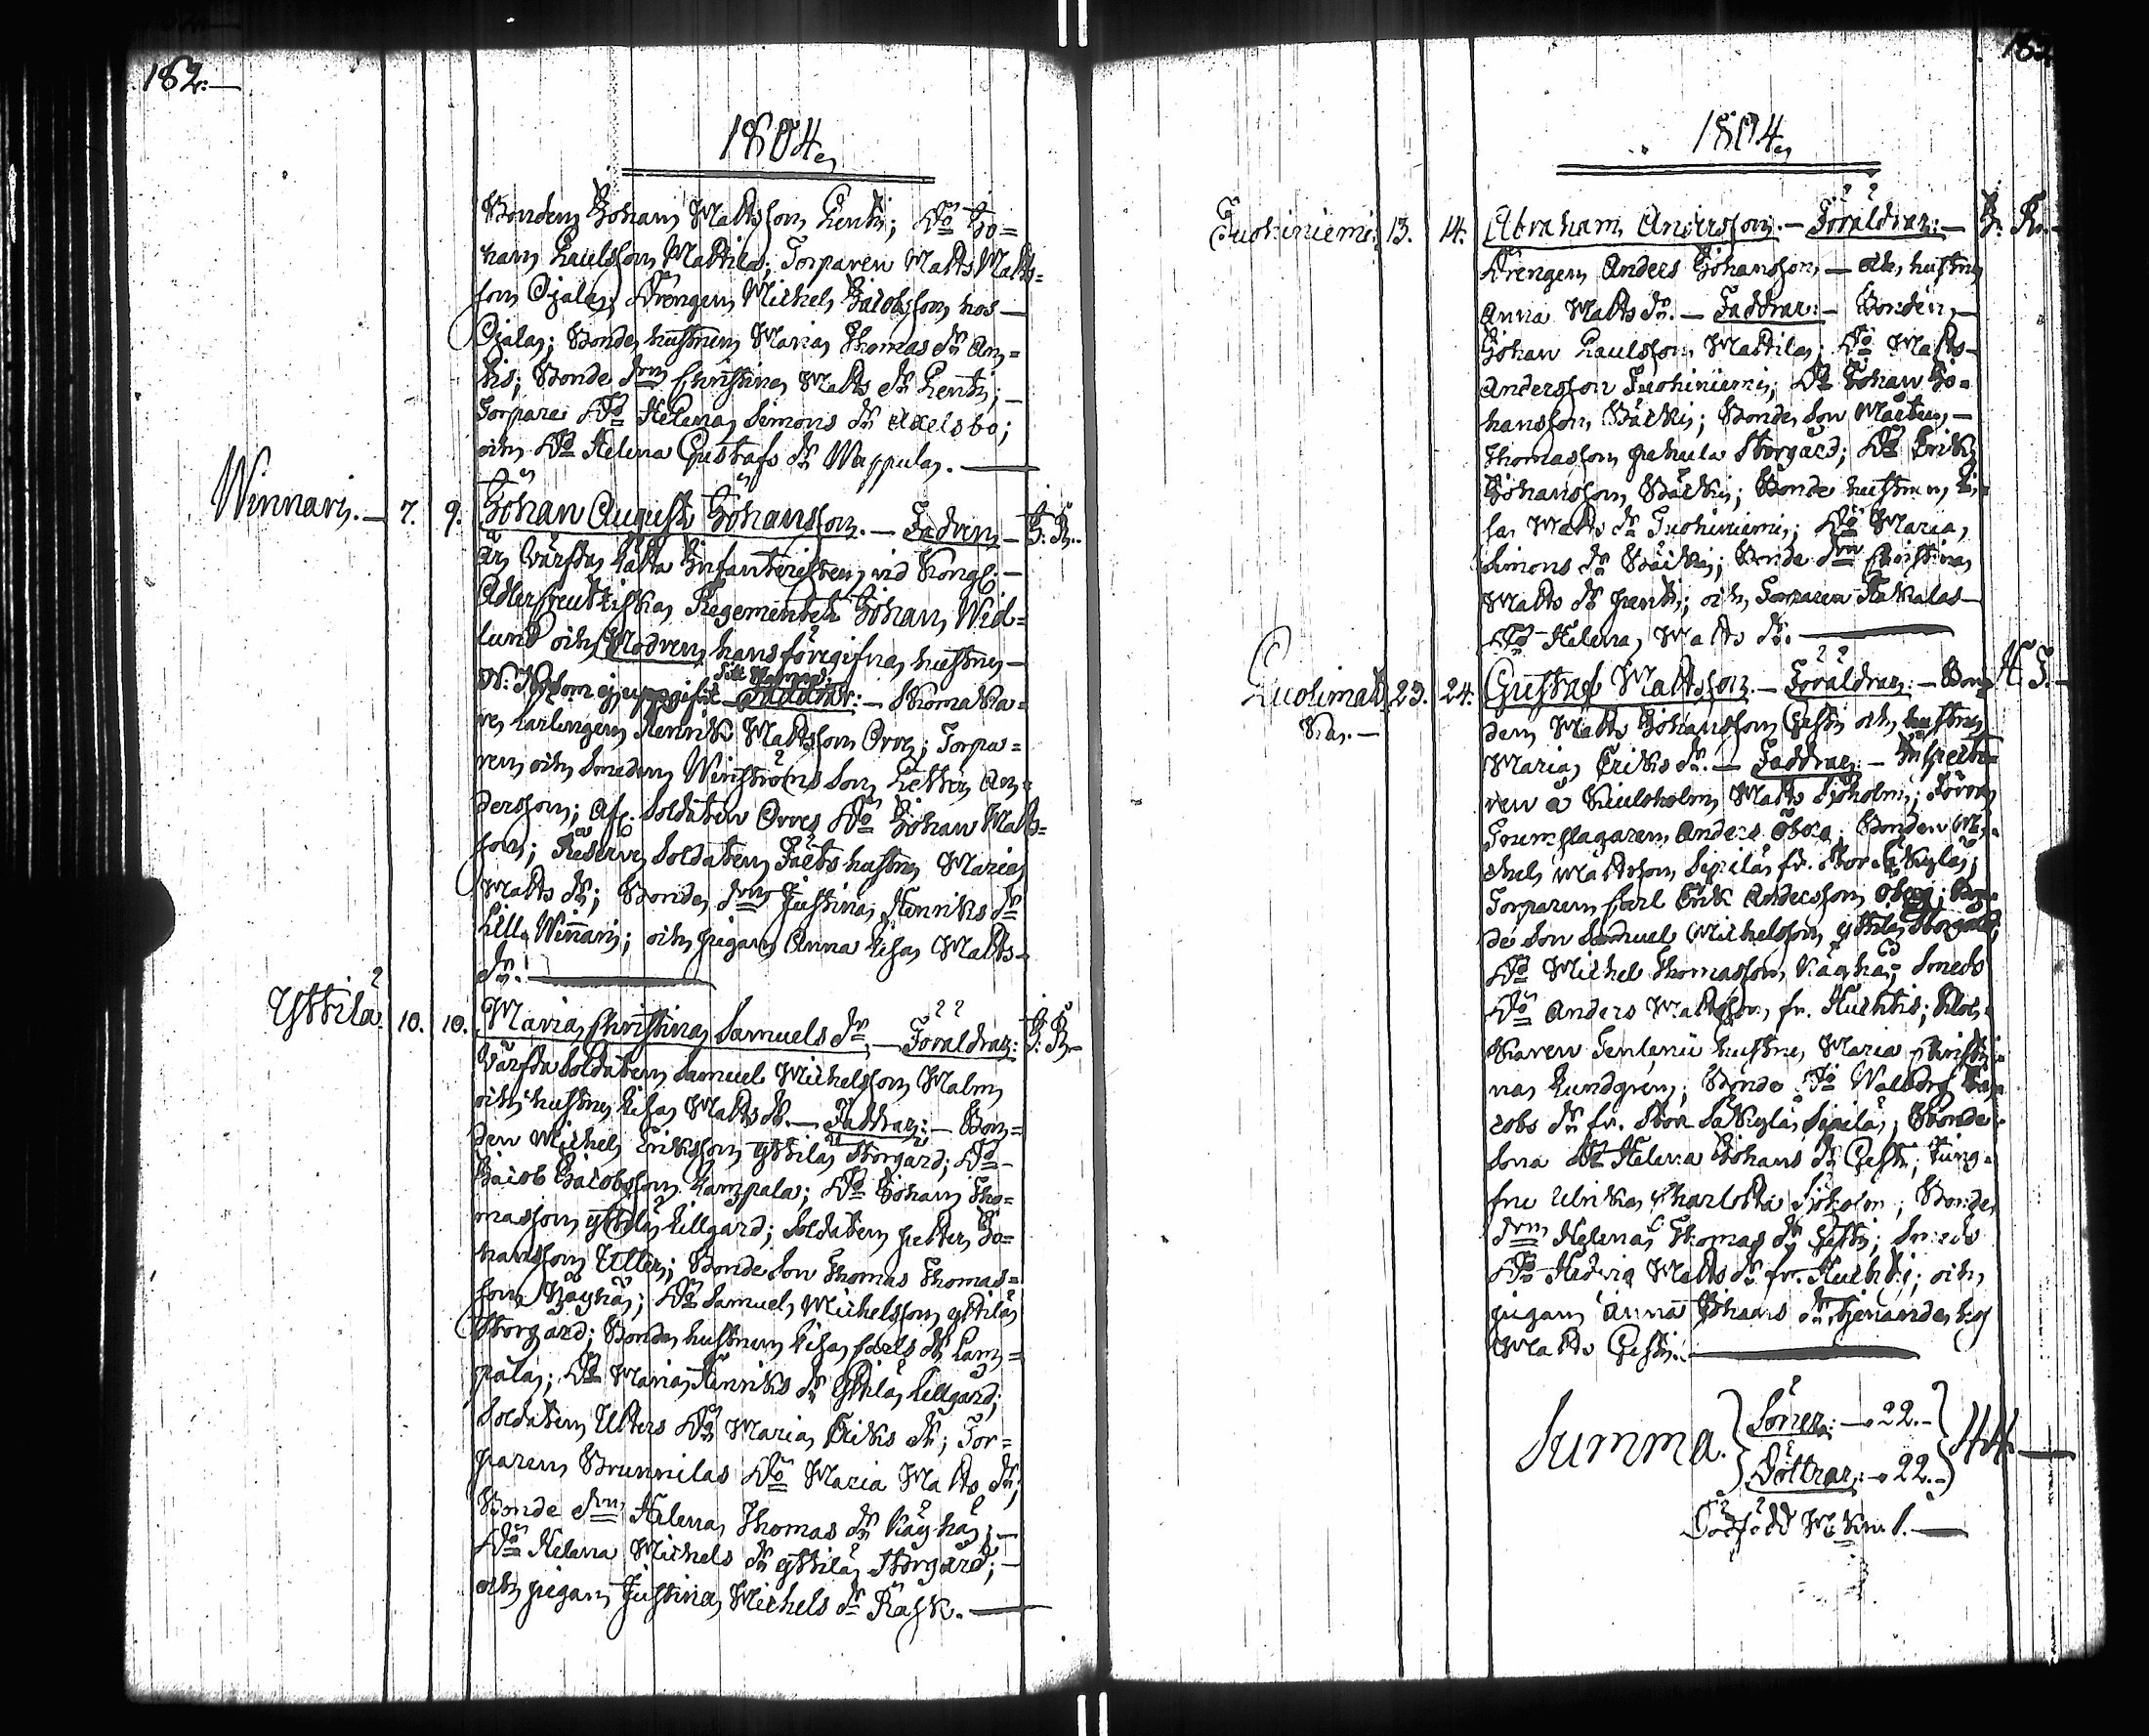 182.
1804.
Bonden Johan Mattsson Pentti; Do Jo=
han Paulsson Mattila; Torparen Matts Matts=
son Ojala; Drengen Michel Jacobsson hos
Ojala; Bonde hustrun Maria Thomas dr An=
tis; Bonde drn Christina Matts dr Pentti;
Torpare Do Helena Simons dr Axelsbo;
och Do Helena Gustafs dr Wappula.
Winnari. 7. 9. Johan August Johansson. Fadren J. R.
är Värfda Lätta Infanteristen vid Kongl.
Adlercreutziska Regementet Johan Wid=
lund och Modren hans föregifna hustru
Faddrar: Skomaka=
re Lärlingen Henrik Mattsson Orre; Torpa=
ren och Smeden Winströms Son Petter An=
dersson; Afs. Soldaten Orres Do Johan Matts=
son; Reserve Soldaten Fälts hustru Maria
Matts dr; Bonde drn Justina Henriks dr
Lilla Winnari; och pigan Anna Lisa Matts
dr.
Yttilä 10. 10. Maria Christina Samuels dr. Föräldrar: J. R.
Värfda Soldaten Samuel Michelsson Malm
och hustru Lisa Matts dr. Faddrar: Bon=
den Michel Eriksson Yttilä Storgård; Do
Jacob Jacobsson Lampala; Do Johan Tho=
masson Yttilä Lillgård; Soldaten Petter Jo=
hansson Utter; Bonde Son Thomas Thomas=
son Käyhä; Do Samuel Michelsson Yttilä
Storgård; Bonde hustrun Lisa Carls dr Lam=
pala; Do Maria Henriks dr Yttilä Lillgård;
Soldaten Utters Do Maria Eriks dr; Tor=
paren Brunnilas Do Maria Matts dr;
Bonde drn Helena Thomas dr Käyhä;
Do Helena Michels dr Yttilä Storgård;
och pigan Justina Michels dr Rask.
183.
1804.
Tuohiniemi. 13. 14. Abraham Andersson. Föräldrar: J. R.
Drengen Anders Johansson och hustru
Anna Matts dr. Faddrar: Bonden
Johan Paulsson Mattila; Do Matts
Andersson Tuohiniemi; Do Johan Jo=
hansson Bäcki; Bonde Son Mårten
Thomasson Storgård; Do Erik
Johansson Bäcki; Bonde hustrun Li=
sa Matts dr Tuohiniemi; Do Maria
Simons dr Bäcki; Bonde drn Christina
Matts dr Pentti; och Torparen Hakalas
Do Helena Matts dr.
23. 24. Gustaf Mattsson. Föräldrar: Bon=
den Matts Johansson och hustru
Maria Eriks dr. Faddrar: Inspecto=
ren å Kiuloholm Matts Sjöholm; Förra
Trumslagaren Anders Öberg; Bonden Mi=
chel Mattsson Sipilä fr. Stor Säkylä;
Torparen Carl Erik Andersson Öberg; Bon=
de Son Samuel Michelsson Yttilä Storgård;
Do Michel Thomasson Käyhä; Smeds
Do Anders Mattsson fr. Huchtis; Kloc=
karen hustru Maria Christi=
na Lundgren; Bonde Do Walborg Ja=
cobs dr fr. Stor Säkylä Sipilä; Bonde
Sona Do Helena Johans dr; Jung=
fru Ulrika Charlotta Sjöholm; Bonde
drn Helena Thomas dr; Smeds
Do Hedvig Matts dr fr. Huchti; och
pigan Anna Johans dr tjenande hos
Matts
Summa. Söner: 22. 44
Döttrar: 22.
Dödfödd